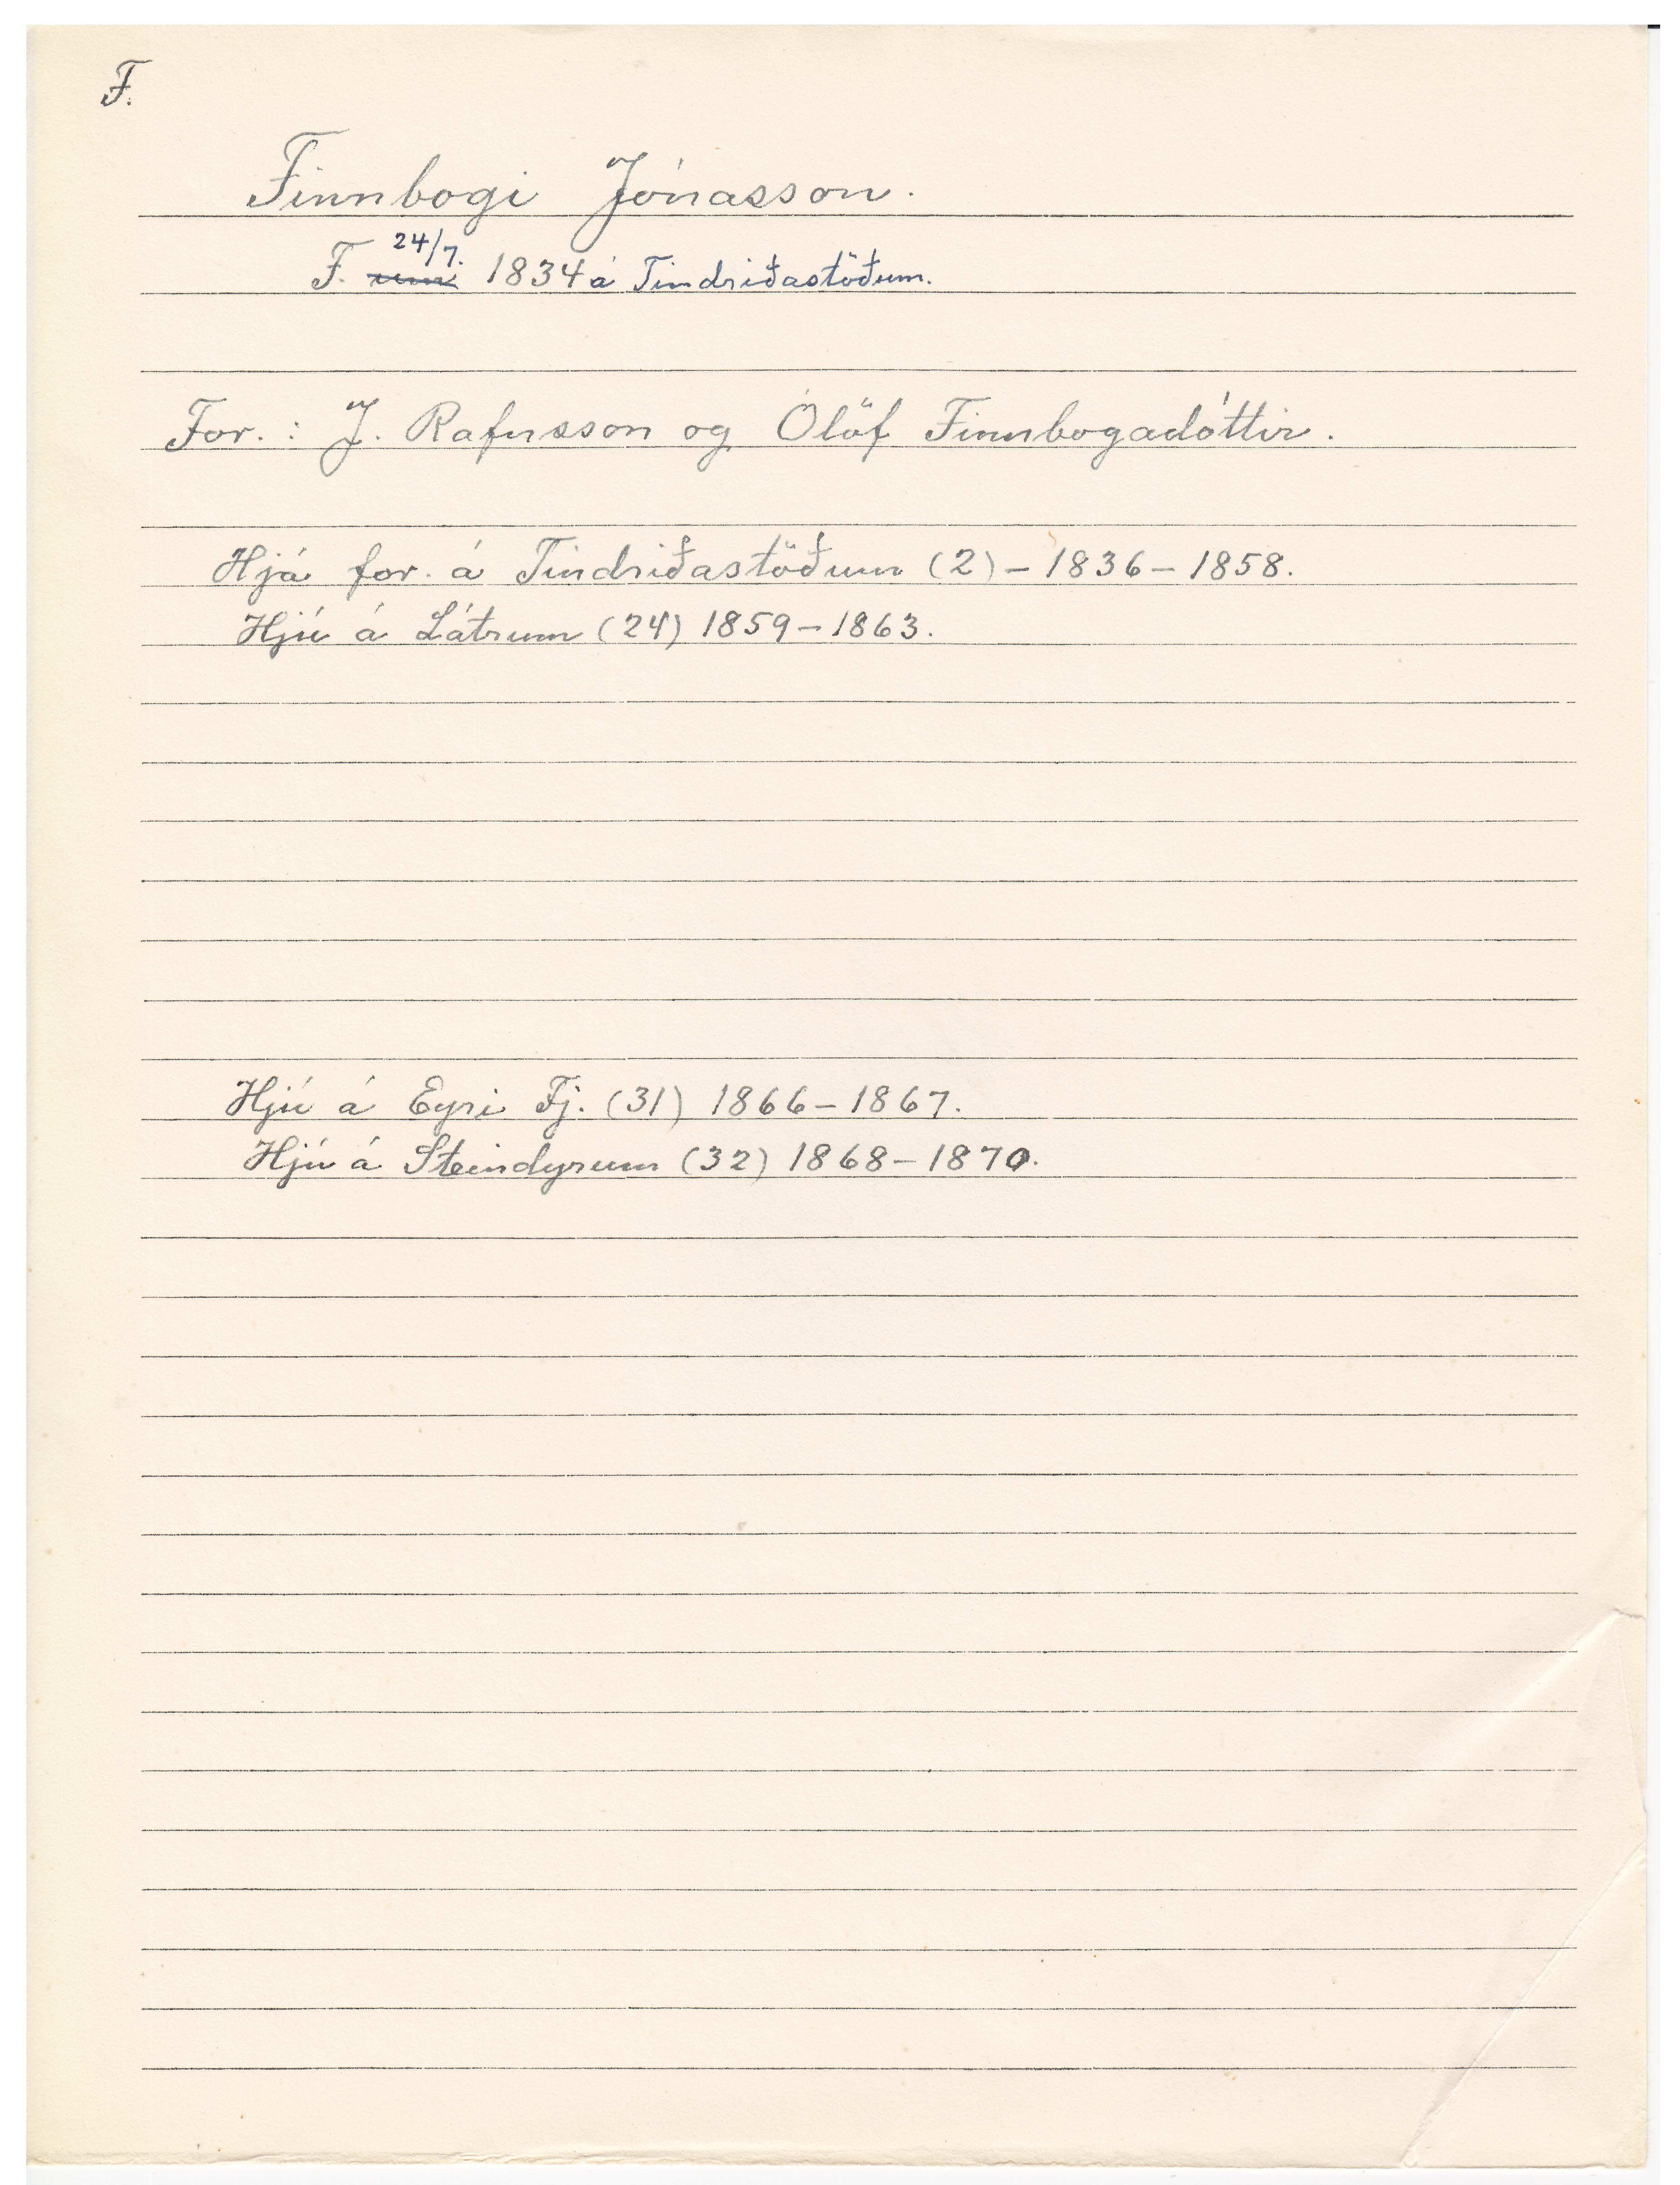 F.
Finnbogi Jónasson.
24/7.
F. um 1834 á Tindriðastöðum.
For. : J. Rafnsson og Ólöf Finnbogadóttir.
Hjá for. á Tindriðastöðum (2) - 1836 - 1858.
Hjú á Látrum (24) 1859 - 1863.
Hjú á Eyri Fj. (31) 1866 - 1867.
Hjú á Steindyrum (32) 1868 - 1870.